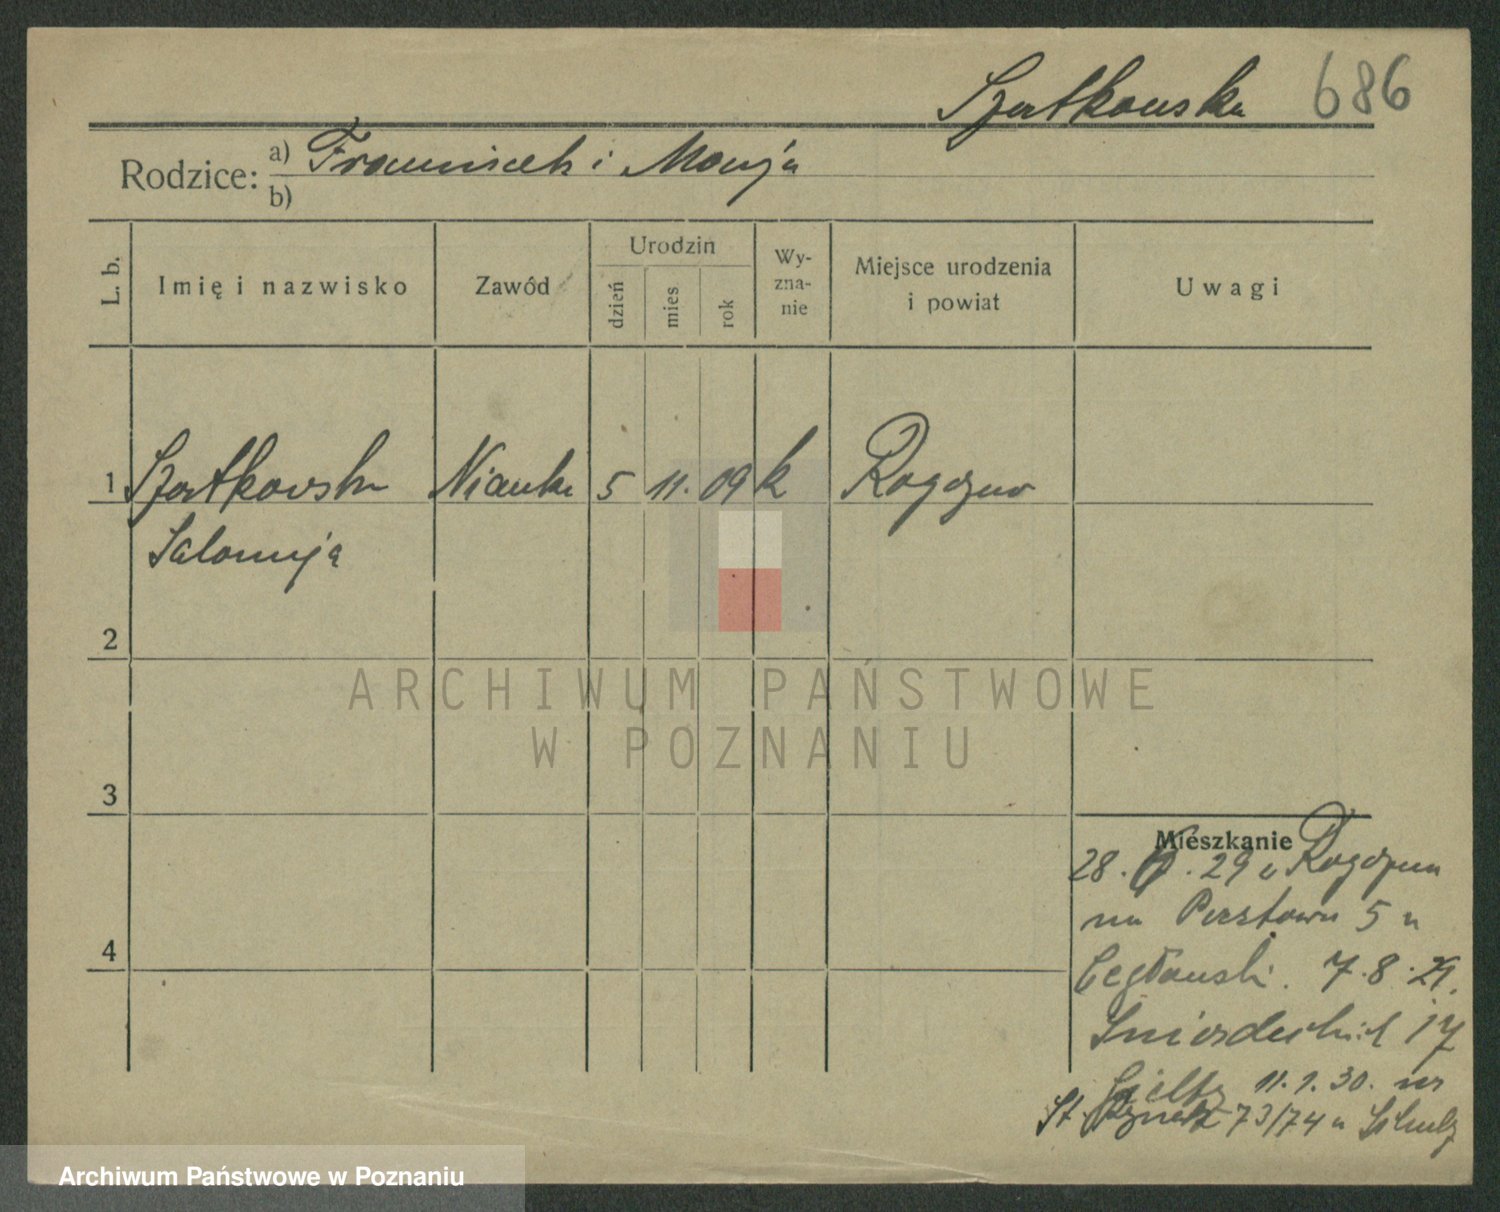 Szatkowska 686
Rodzice: a) Franciszek i Maryja
b)
L. b. Imię i nazwisko Zawód Urodzin dzień mies rok Wy-zna-nie Miejsce urodzenia i powiat Uwagi
1 Szatkowska Nianka 5 11. 09 k Rogoźno
Salomeja
2
ARCHIWUM PAŃSTWOWE
W POZNANIU
3
Mieszkanie
28. 29 z Rogoźna
na 5 u
Cegłowski. 7.8.29.
Śniadeckich 17
11.1.30. na
St. Rynek 73/74 u Schulz
4
Archiwum Państwowe w Poznaniu